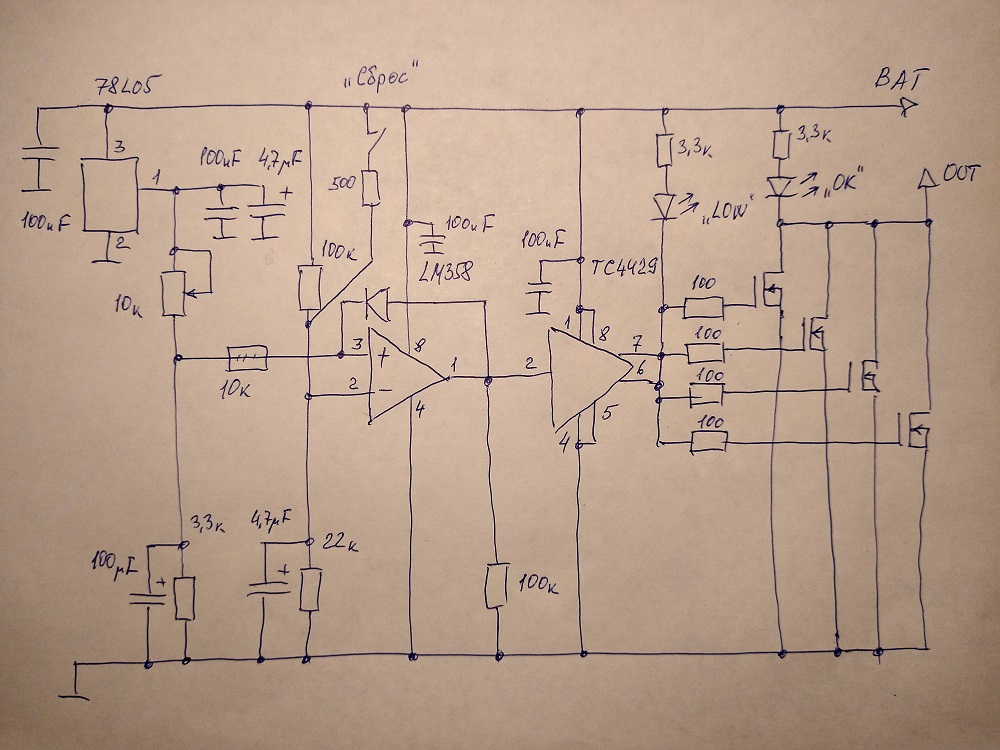 78L05
„Сброс“
BAT
3
1
2
100нF
4,7µF
+
100нF
500
100к
100нF
LM358
100нF
TC4429
3,3к
„LOW“
3,3к
„OK“
OUT
10к
10к
3
+
8
1
2
−
4
2
1
8
7
6
5
4
100
100
100
100
3,3к
100µF
+
4,7µF
+
22к
100к